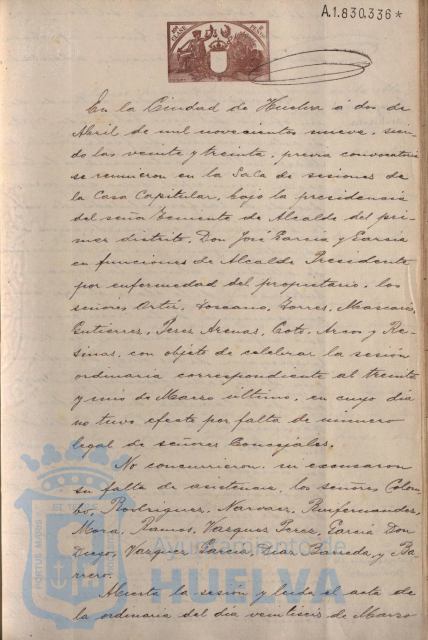 A.1.830.336*
En la Ciudad de Huelva á dos de
Abril de mil novecientos nueve, sien-
do las veinte y treinta, previa convocatoria
se reunieron en la Sala de sesiones de
la Casa Capitular, bajo la presidencia
del señor Teniente de Alcalde del pri-
mer distrito, Don José García y García
en funciones de Alcalde Presidente
por enfermedad del propietario, los
señores Ortiz, Toscano, Torres, Mascarós,
Gutiérrez, Perez Arenas, Coto, Arcos y Re-
sinas, con objeto de celebrar la sesión
ordinaria correspondiente al treinta
y uno de Marzo último, en cuyo dia
no tuvo efecto por falta de número
legal de señores Concejales.
No concurrieron, ni excusaron
su falta de asistencia, los señores Colom-
bo, Rodriguez, Narvaez, Ruifernandez,
Mora, Ramos, Vazquez Perez, García Don
Diego, Vazquez García, Diaz Barreda, y Ba-
rrero.
Abierta la sesión y leida el acta de
la ordinaria del dia veintiseis de Marzo
Ayuntamiento de
HUELVA